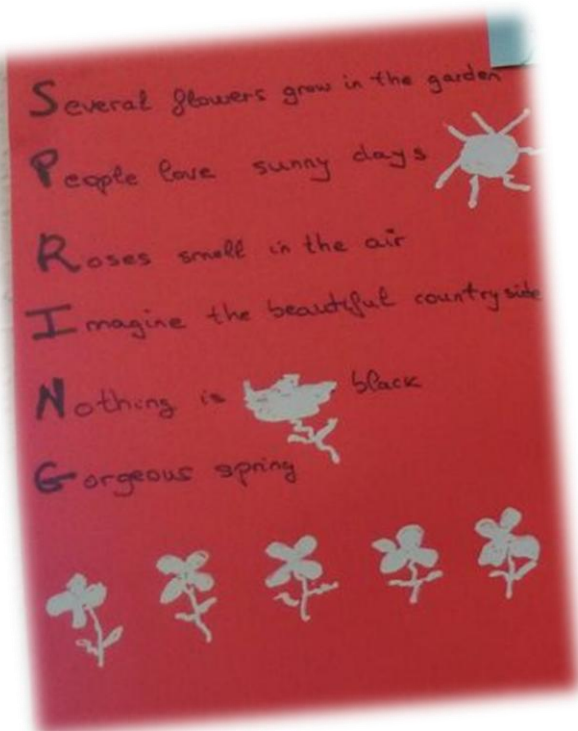 Several flowers grow in the garden
People love sunny days
Roses smell in the air
Imagine the beautiful countryside
Nothing is black
Gorgeous spring